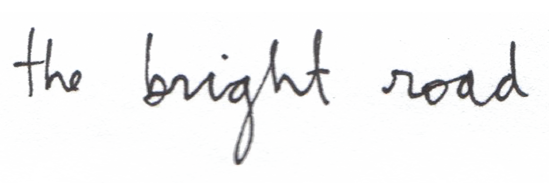 the bright road